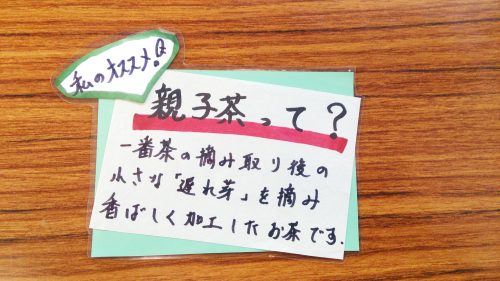 私のオススメ!
親子茶って?
一番茶の摘み取り後の
小さな「遅れ芽」を摘み
香ばしく加工したお茶です.